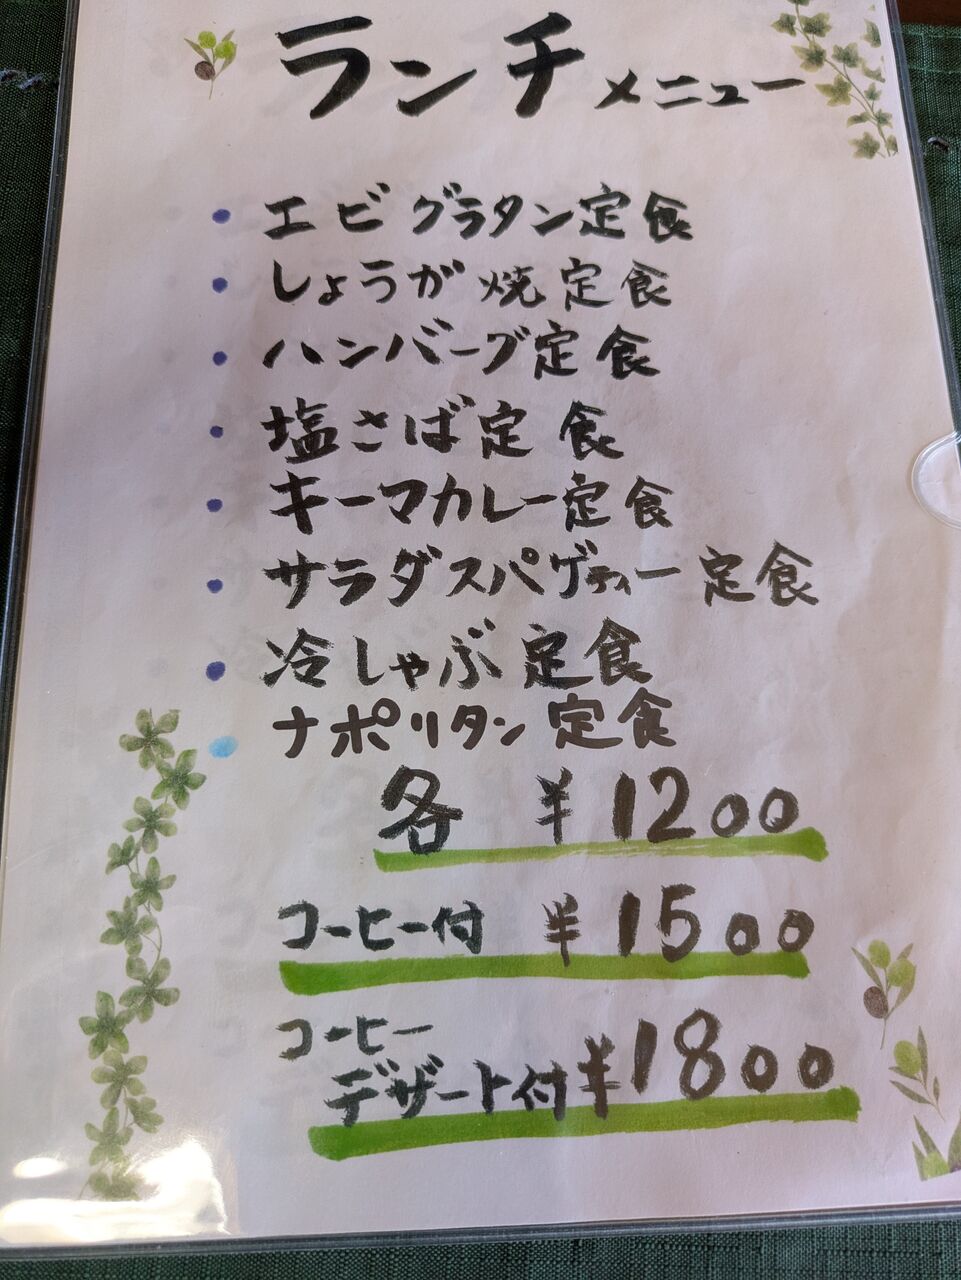 ランチメニュー
・エビグラタン定食
・しょうが焼定食
・ハンバーグ定食
・塩さば定食
・キーマカレー定食
・サラダスパゲティー定食
・冷しゃぶ定食
・ナポリタン定食
各 ¥1200
コーヒー付 ¥1500
コーヒー
デザート付 ¥1800